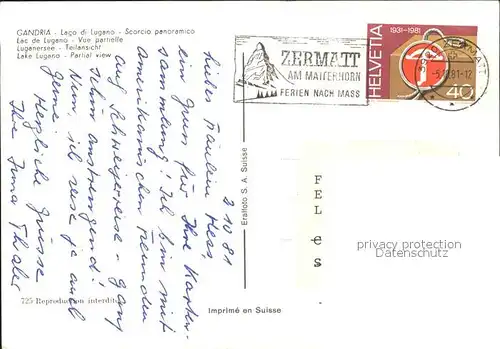 GANDRIA - Lago di Lugano - Scorcio panoramico
Lac de Lugano - Vue partielle
Luganersee - Teilansicht
Lake Lugano - Partial view
ZERMATT
AM MATTERHORN
FERIEN NACH MASS
1931-1981
HELVETIA
40
3920 ZERMATT
-5.10.81-12
2 10 81
Liebes Fräulein Hess,
ein Gruss für Ihre Karten-
sammlung! Ich bin mit
Amerikanischen Freunden
auf Schweizerreise - ganz
schön anstrengend!
Nun, ich reise ja auch
gerne!
Herzliche Grüsse
Ihre Irma Thaler
Eralfoto S. A. Suisse
725 Reproduction interdite
Imprimé en Suisse
F
E L
L e
S
privacy protection
Datenschutz